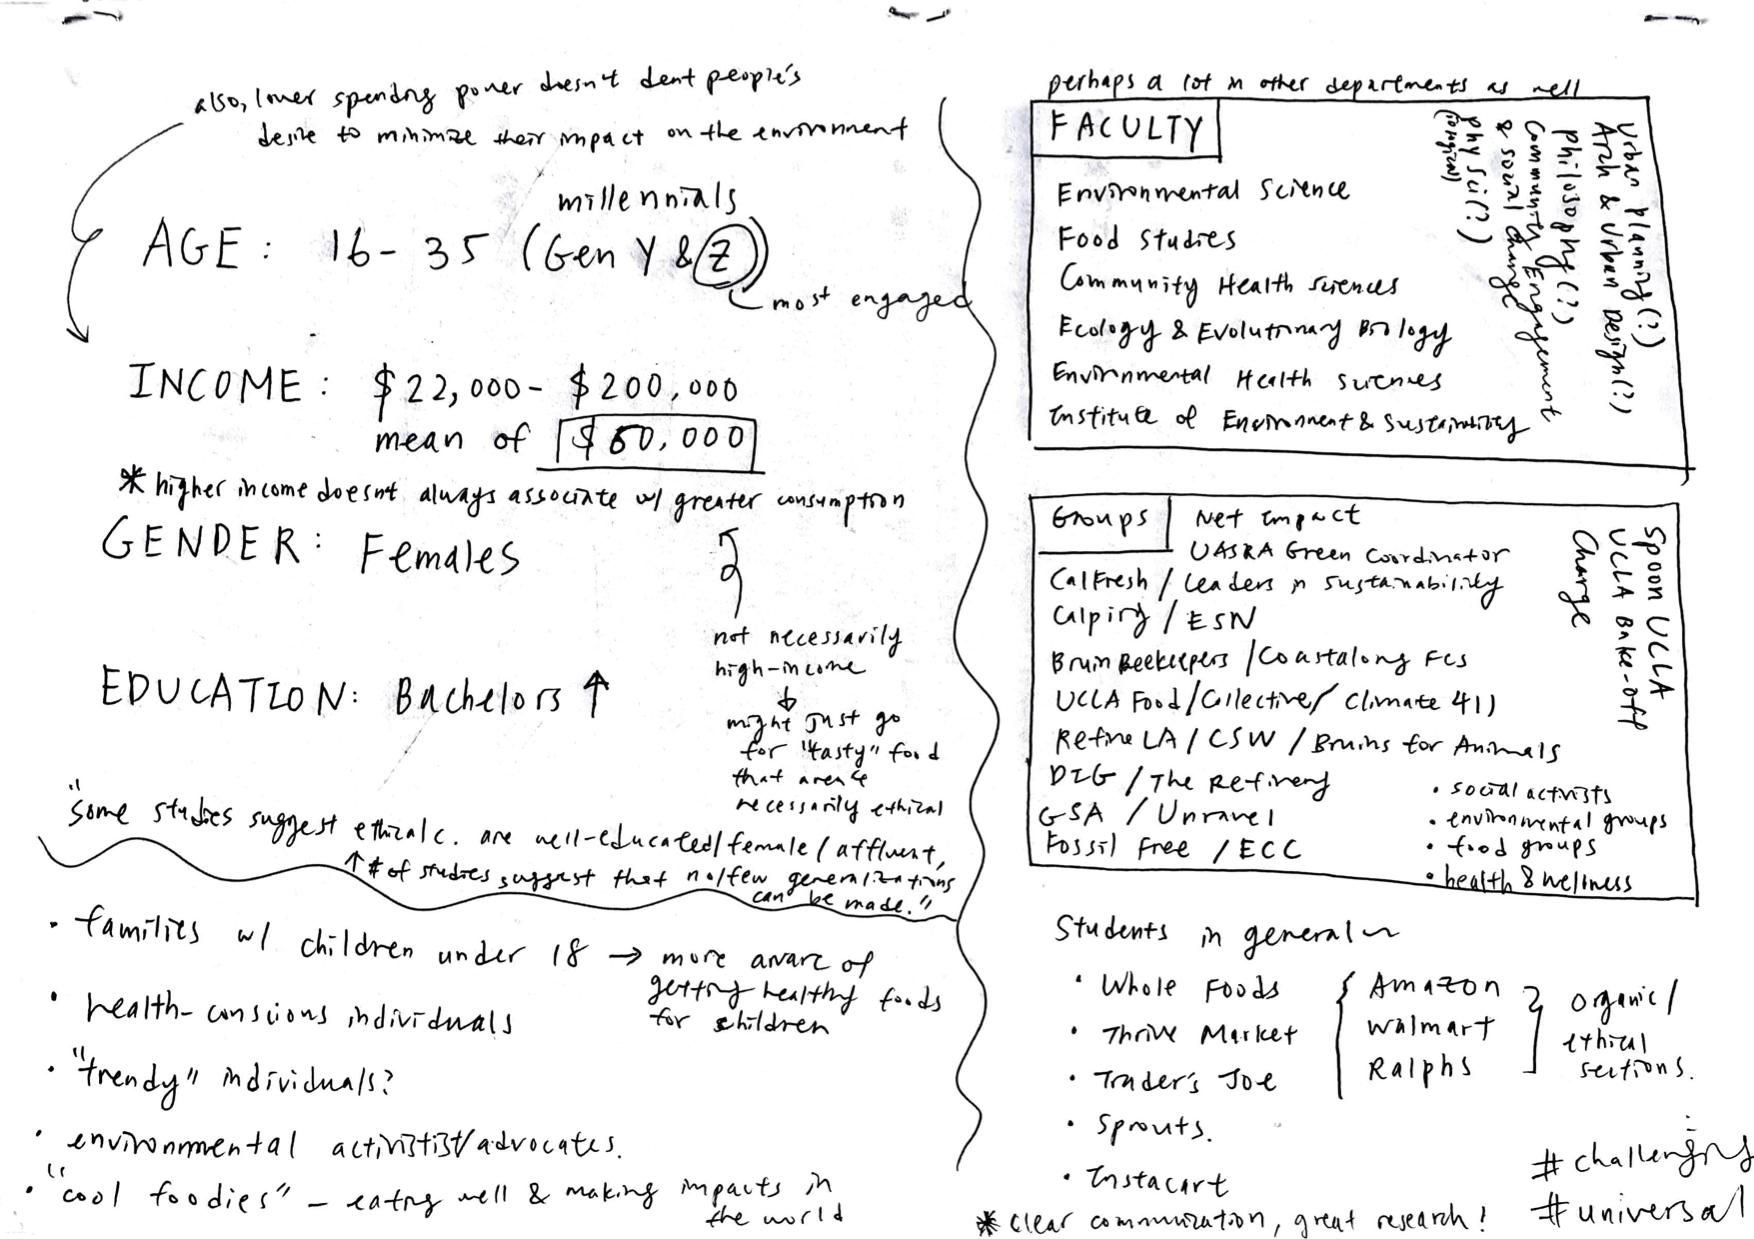 also, lower spending power doesn't dent people's
desire to minimize their impact on the environment
millennials
AGE: 16-35 (Gen Y & Z)
most engaged
INCOME: $22,000- $200,000
mean of
* higher income doesn't always associate w/ greater consumption
GENDER: Females
not necessarily
high-income
↓
might just go
for "tasty" food
that aren't
necessarily ethical
EDUCATION: Bachelors ↑
"some studies suggest ethical c. are well-educated/female/affluent,
↑ # of studies suggest that no/few generalizations
can be made."
• families w/ children under 18 → more aware of
getting healthy foods
for children
• health-conscious individuals
• "trendy" individuals?
• environmental activists/advocates.
• "cool foodies" – eating well & making impacts in
the world
perhaps a lot in other departments as well
FACULTY
Environmental Science
Food Studies
Community Health Sciences
Ecology & Evolutionary Biology
Environmental Health Sciences
Institute of Environment & Sustainability
Urban planning(?)
Arch & Urban Design(?)
Philosophy(?)
Community Engagement
& social change
phy sci(?)
Groups
Net Impact
UASRA Green Coordinator
CalFresh / Leaders in Sustainability
Calpirg / ESN
Bruin Beekeepers / Coastalong Fcs
UCLA Food/Collective/ Climate 411
Refine LA / CSW / Bruins for Animals
DIG / The Refinery
GSA / Unravel
Fossil Free / ECC
Spoon UCLA
UCLA Bake-off
Charge
• social activists
• environmental groups
• food groups
• health & wellness
Students in general~
• Whole Foods
• Thrive Market
• Trader's Joe
• Sprouts.
• Instacart
Amazon
Walmart
Ralphs
organic/
ethical
sections.
* clear communication, great research!
#challenging
#universal